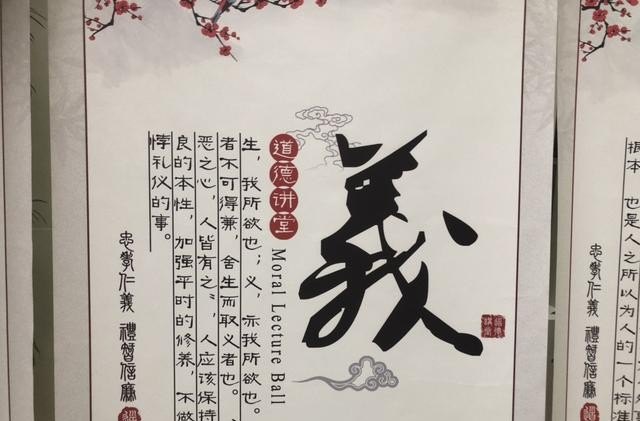 義
道德讲堂
Moral Lecture Ball
生，我所欲也；义，亦我所欲也。
者不可得兼，舍生而取义者也。
恶之心，人皆有之”，人应该保持
良的本性，加强平时的修养，不做
悖礼仪的事。
忠孝仁義 禮智信廉
根本，也是人之所以为人的一个标准
忠孝仁義 禮智信廉